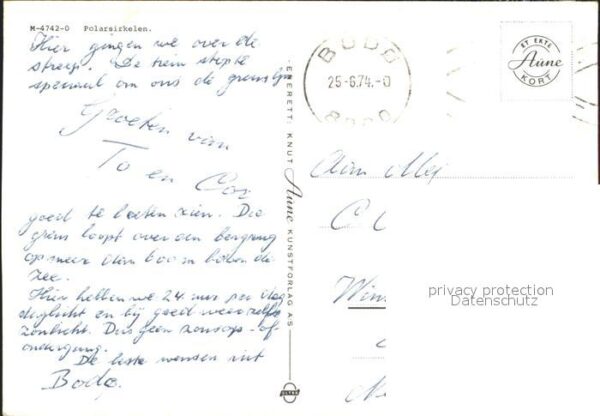 M-4742-O Polarsirkelen.
Hier gingen we over de
streep. De trein stopte
speciaal om ons de grenslijn
Groeten van
To en Cor
goed te laten zien. Die
grens loopt over den bergrug
op meer dan 600 m boven de
zee.
Hier hebben we 24 uur per dag
daglicht en bij goed weer zelfs
zonlicht. Dus geen zonsop- of
ondergang.
De beste wensen uit
Bodø.
ENERETT: KNUT Aune KUNSTFORLAG A/S
BODØ
25-6.74.-0
BODØ
ET EKTE
Aune
KORT
Aan Mej
privacy protection
Datenschutz